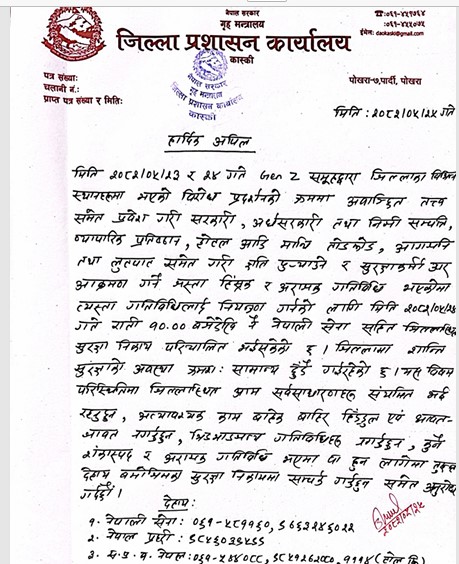 नेपाल सरकार
गृह मन्त्रालय
जिल्ला प्रशासन कार्यालय
कास्की
ईमेल: daokaski@gmail.com
पत्र संख्याः
चलानी नं.:
प्राप्त पत्र संख्या र मितिः
पोखरा-७,पार्दी, पोखरा
मिति : २०८२/०५/२५ गते
हार्दिक अपिल
मिति २०८२/०५/२३ र २४ गते Gen Z समूहद्वारा जिल्लाका विभिन्न
स्थानहरूमा भएको विरोध प्रदर्शनको क्रममा अवाञ्छित तत्व
समेत प्रवेश गरी सरकारी, अर्धसरकारी तथा निजी सम्पत्ति,
व्यापारिक प्रतिष्ठान, होटल आदि माथि तोडफोड, आगजनी
तथा लुटपाट समेत गरी क्षति पुर्‍याउने र सुरक्षाकर्मी उपर
आक्रमण गर्ने जस्ता हिंस्रक र अराजक गतिविधि भएकोमा
त्यस्ता गतिविधिलाई नियन्त्रण गर्नको लागि मिति २०८२/०५/२४
गते राती १०.०० बजेदेखि नै नेपाली सेना सहित जिल्लास्थित
सुरक्षा निकाय परिचालित भईसकेको छ। जिल्लामा शान्ति
सुरक्षाको अवस्था क्रमशः सामान्य हुँदै गईरहेको छ। यस विषम
परिस्थितिमा जिल्लास्थित आम सर्वसाधारणहरू संयमित भई
रहनुहुन, अत्यावश्यक काम बाहेक बाहिर हिँडडुल एवं आवत-
जावत नगर्नुहुन, भिडभाडजन्य गतिविधिहरू नगर्नुहुन, कुनै
शंकास्पद र अराजक गतिविधि भएमा वा हुन लागेमा तुरुन्त
देहाय बमोजिमका सुरक्षा निकायमा सम्पर्क गर्नुहुन समेत अनुरोध
गर्दछौं।
देहाय:
१. नेपाली सेना: ०६१-
२. नेपाल प्रहरी :
३. स.प्र.ब. नेपाल:०६१-